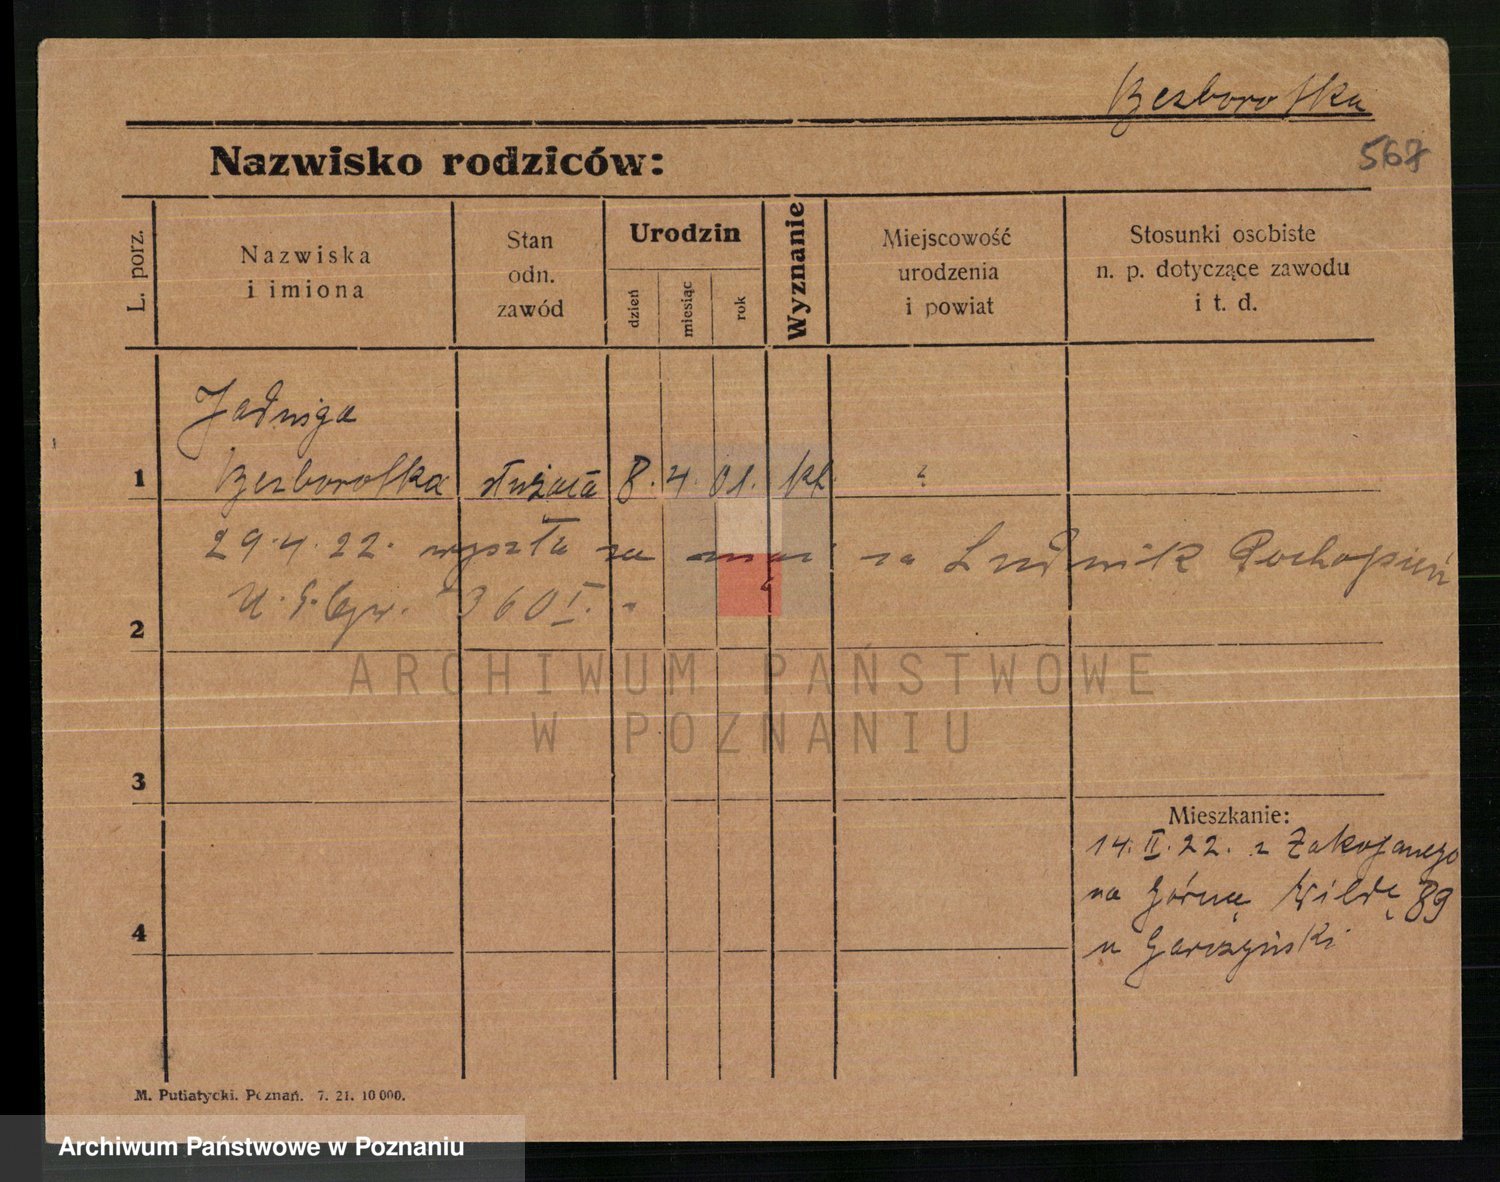 Bezborotka
567
Nazwisko rodziców:
L. porz.
Nazwiska
i imiona
Stan
odn.
zawód
Urodzin
dzień
miesiąc
rok
Wyznanie
Miejscowość
urodzenia
i powiat
Stosunki osobiste
n. p. dotyczące zawodu
i t. d.
Jadwiga
1 Bezborotka służąca 8. 4. 01. kt. ?
29.4.22. wyszła za mąż za Ludwik
U. S. 360 I.
2
3
Mieszkanie:
14. II. 22. z Zakopanego
na Górną Wildę 89
4
u Garczyński
ARCHIWUM PAŃSTWOWE
W POZNANIU
M. Putiatycki. Poznań. 7. 21. 10 000.
Archiwum Państwowe w Poznaniu